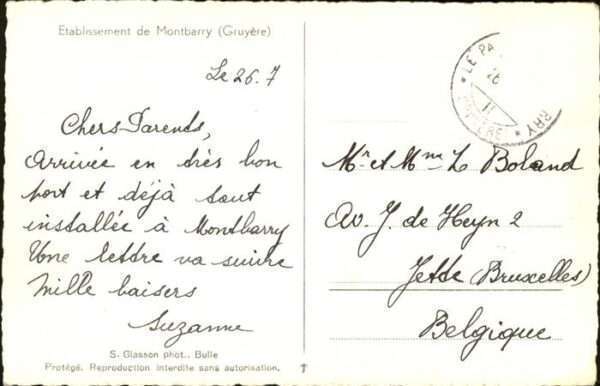 Etablissement de Montbarry (Gruyère)
Le 26.7
Chers Parents,
Arrivée en très bon
port et déjà tout
installée à Montbarry
Une lettre va suivre
Mille baisers
Suzanne
S. Glasson phot.. Bulle
Protégé. Reproduction interdite sans autorisation.
LE PA
26
RRY
Mr et Mme L Boland
Av. J. de Heyn 2
Jette (Bruxelles)
Belgique